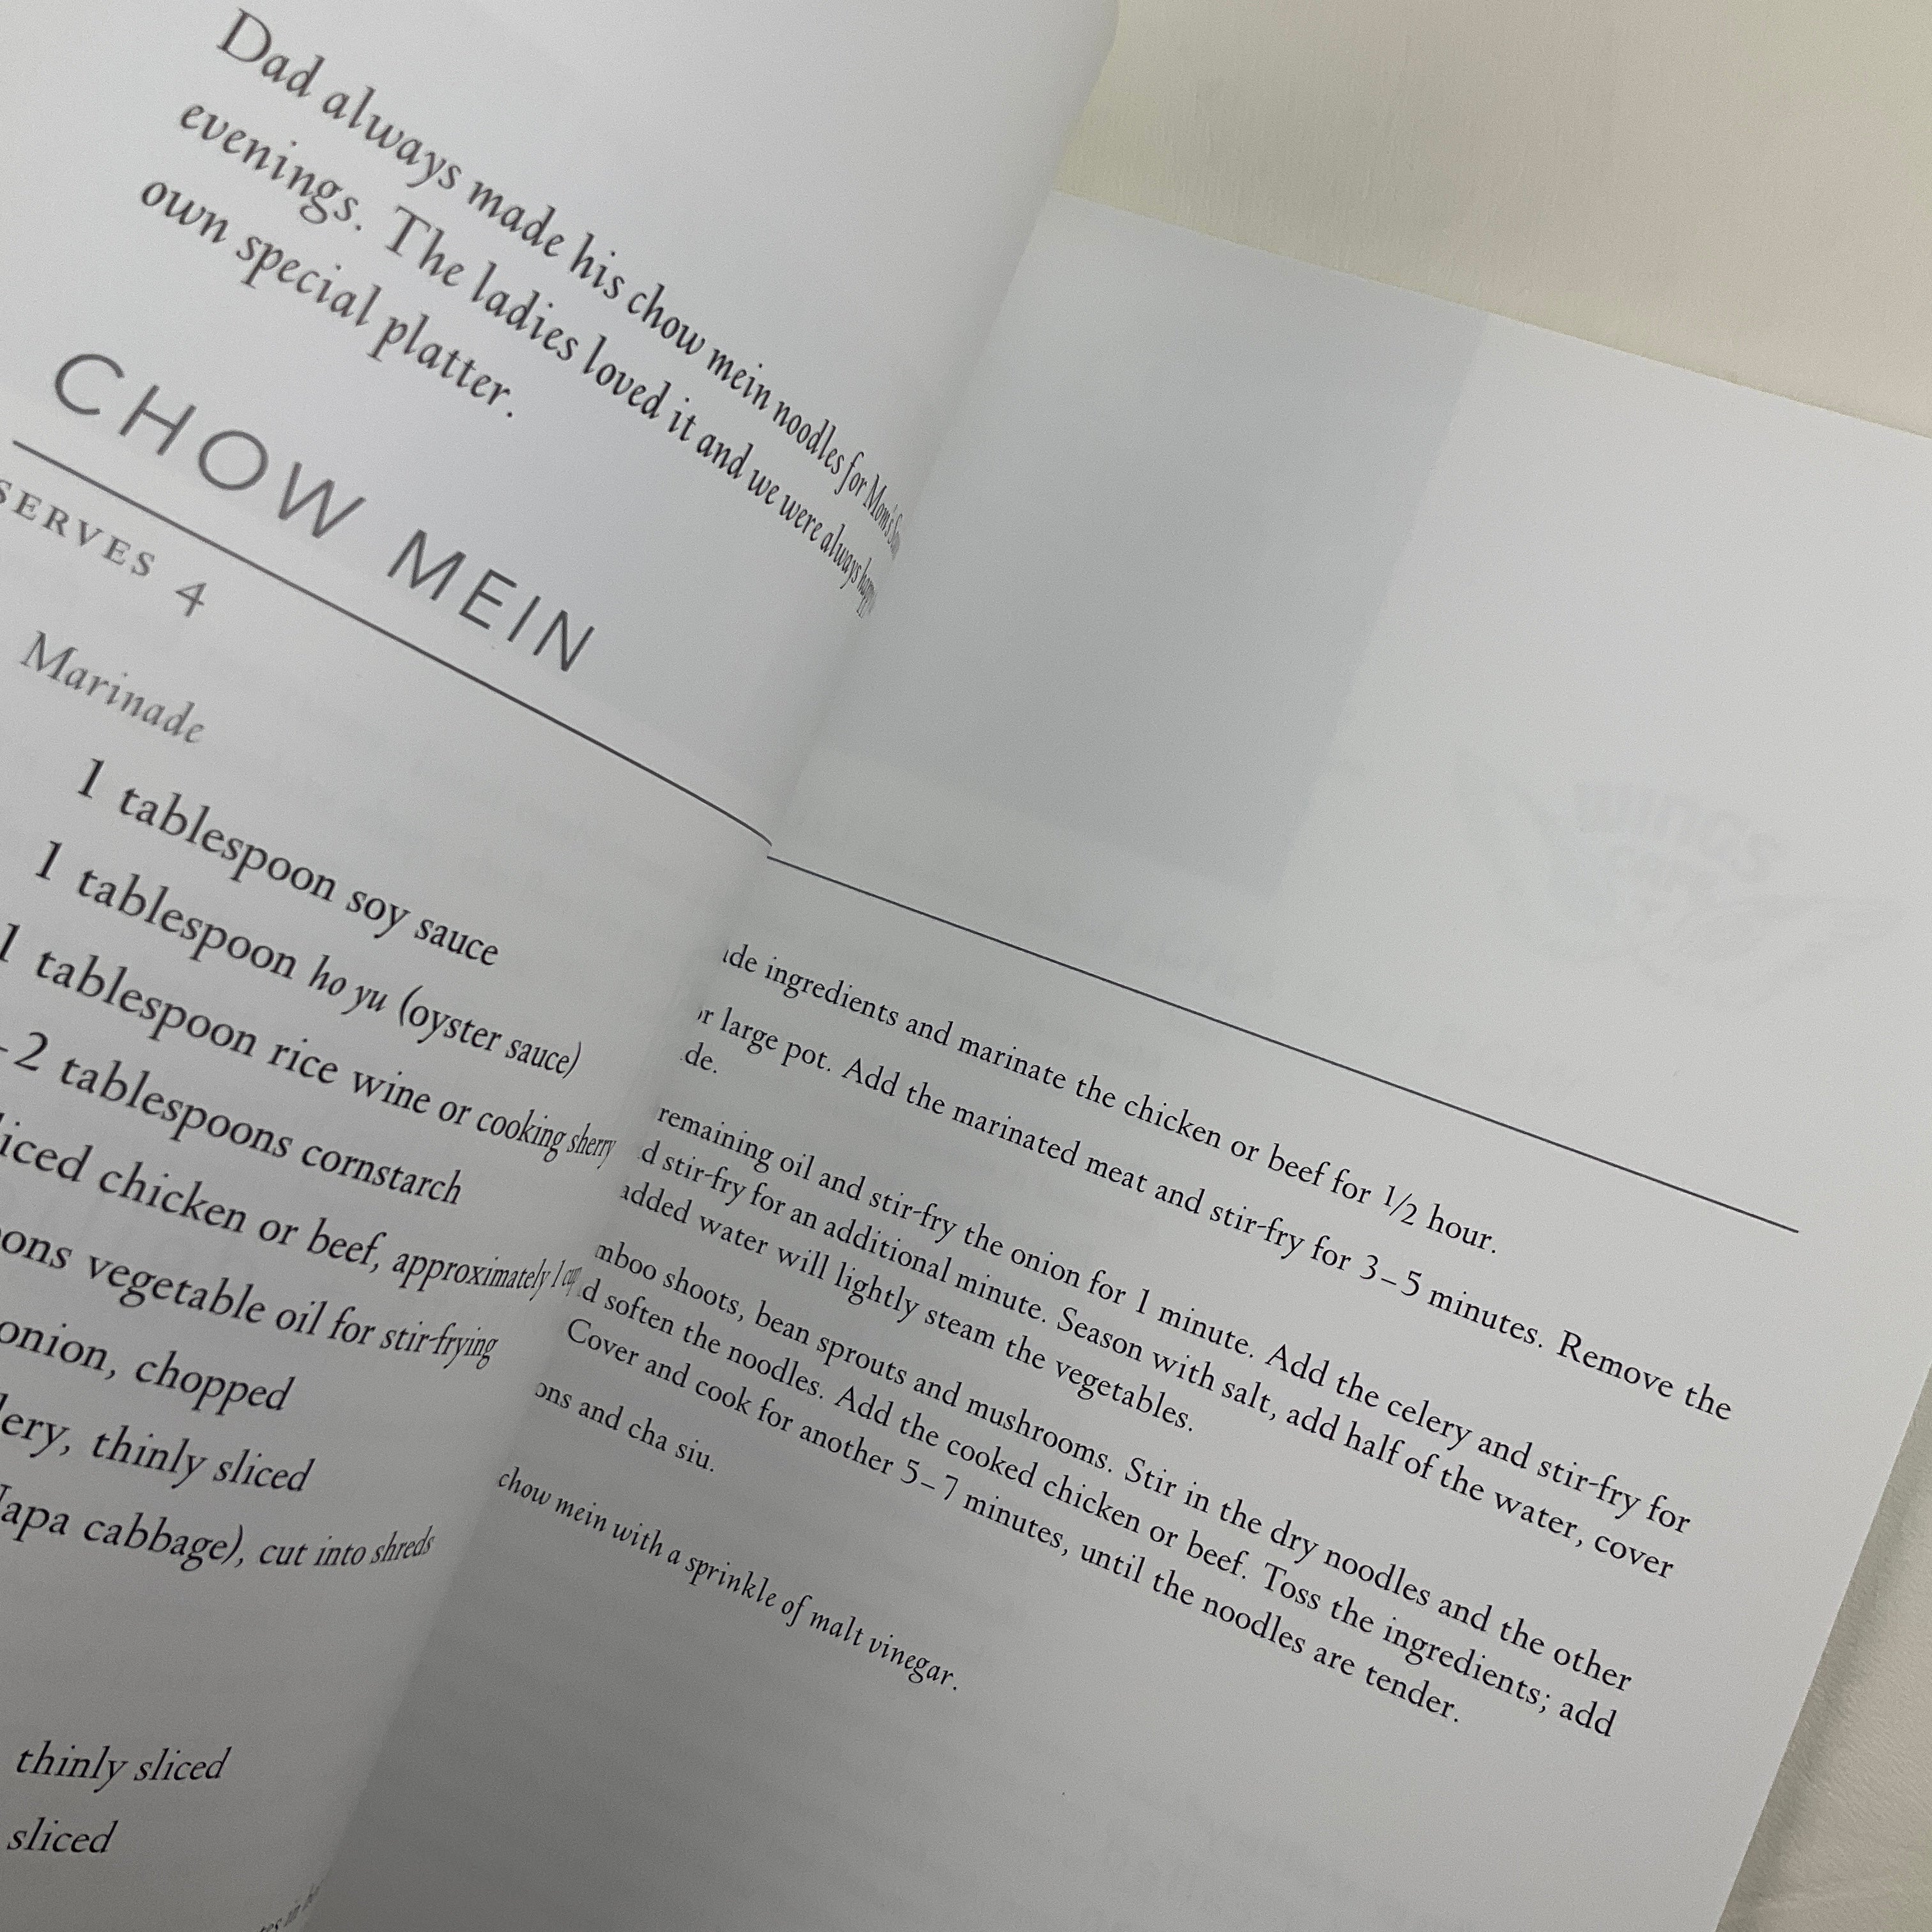 Dad always made his chow mein noodles for Mom's
evenings. The ladies loved it and we were always
own special platter.
CHOW MEIN
SERVES 4
Marinade
1 tablespoon soy sauce
1 tablespoon ho yu (oyster sauce)
1 tablespoon rice wine or cooking sherry
2 tablespoons cornstarch
chicken or beef, approximately 1 cup
vegetable oil for stir-frying
onion, chopped
thinly sliced
cabbage), cut into shreds
thinly sliced
sliced
ingredients and marinate the chicken or beef for 1/2 hour.
large pot. Add the marinated meat and stir-fry for 3–5 minutes. Remove the
remaining oil and stir-fry the onion for 1 minute. Add the celery and stir-fry for
stir-fry for an additional minute. Season with salt, add half of the water, cover
added water will lightly steam the vegetables.
shoots, bean sprouts and mushrooms. Stir in the dry noodles and the other
soften the noodles. Add the cooked chicken or beef. Toss the ingredients; add
Cover and cook for another 5–7 minutes, until the noodles are tender.
and cha siu.
chow mein with a sprinkle of malt vinegar.